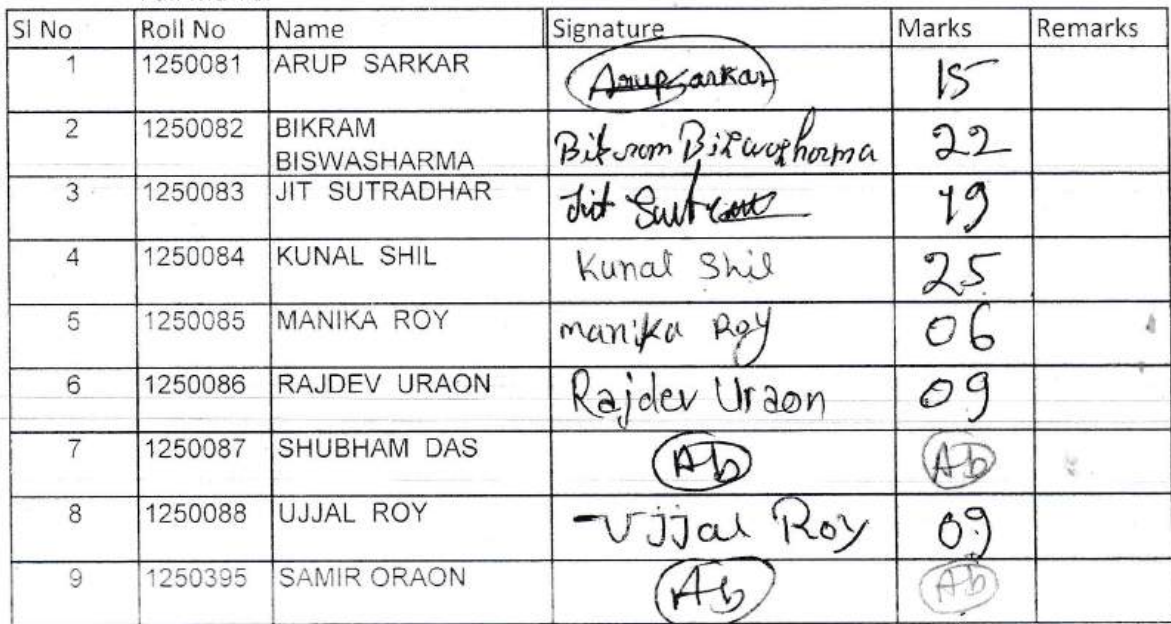 Sl No Roll No Name Signature Marks Remarks
1 1250081 ARUP SARKAR Arup Sarkar 15
2 1250082 BIKRAM Bikram Biswasharma 22
BISWASHARMA
3 1250083 JIT SUTRADHAR Jit 19
4 1250084 KUNAL SHIL Kunal Shil 25
5 1250085 MANIKA ROY manika Roy 06
6 1250086 RAJDEV URAON Rajdev Uraon 09
7 1250087 SHUBHAM DAS Ab Ab
8 1250088 UJJAL ROY Ujjal Roy 09
9 1250395 SAMIR ORAON Ab Ab